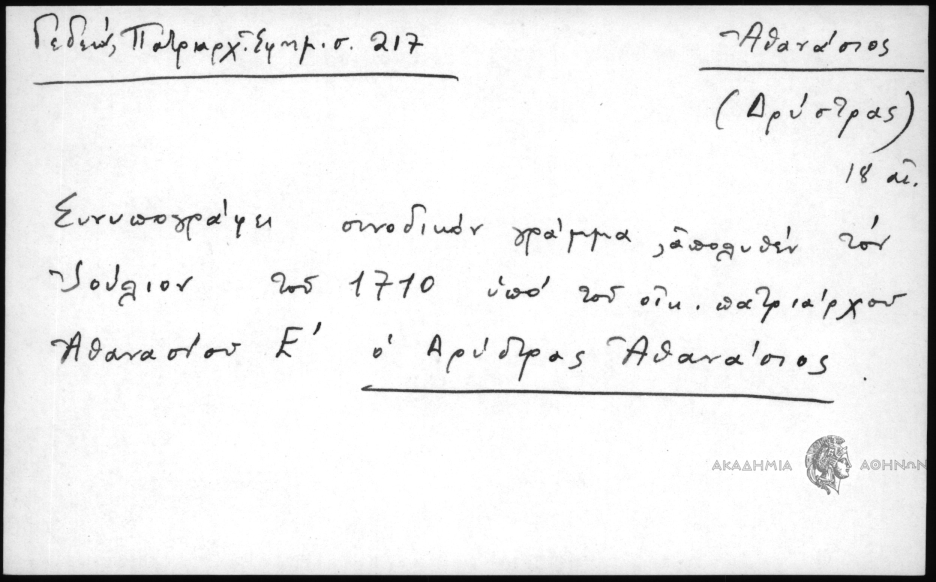 Γεδεών, Πατριαρχ. Εφημ. σ. 217
Ἀθανάσιος
(Δρύστρας)
18 αἰ.
Συνυπογράφει συνοδικόν γράμμα, ἀπολυθέν τόν
Ἰούλιον τοῦ 1710 ὑπό τοῦ οἰκ. πατριάρχου
Ἀθανασίου Ε' ὁ Δρύστρας Ἀθανάσιος.
ΑΚΑΔΗΜΙΑ ΑΘΗΝΩΝ